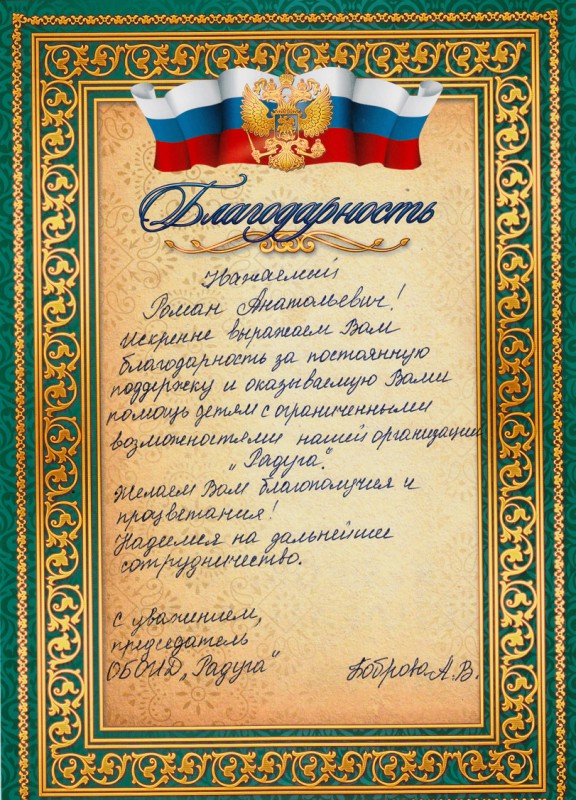 Благодарность
Уважаемый
Роман Анатольевич!
Искренне выражаем Вам
благодарность за постоянную
поддержку и оказываемую Вами
помощь детям с ограниченными
возможностями нашей организации
„Радуга".
Желаем Вам благополучия и
процветания!
Надеемся на дальнейшее
сотрудничество.
С уважением,
председатель
„Радуга“ А.В.